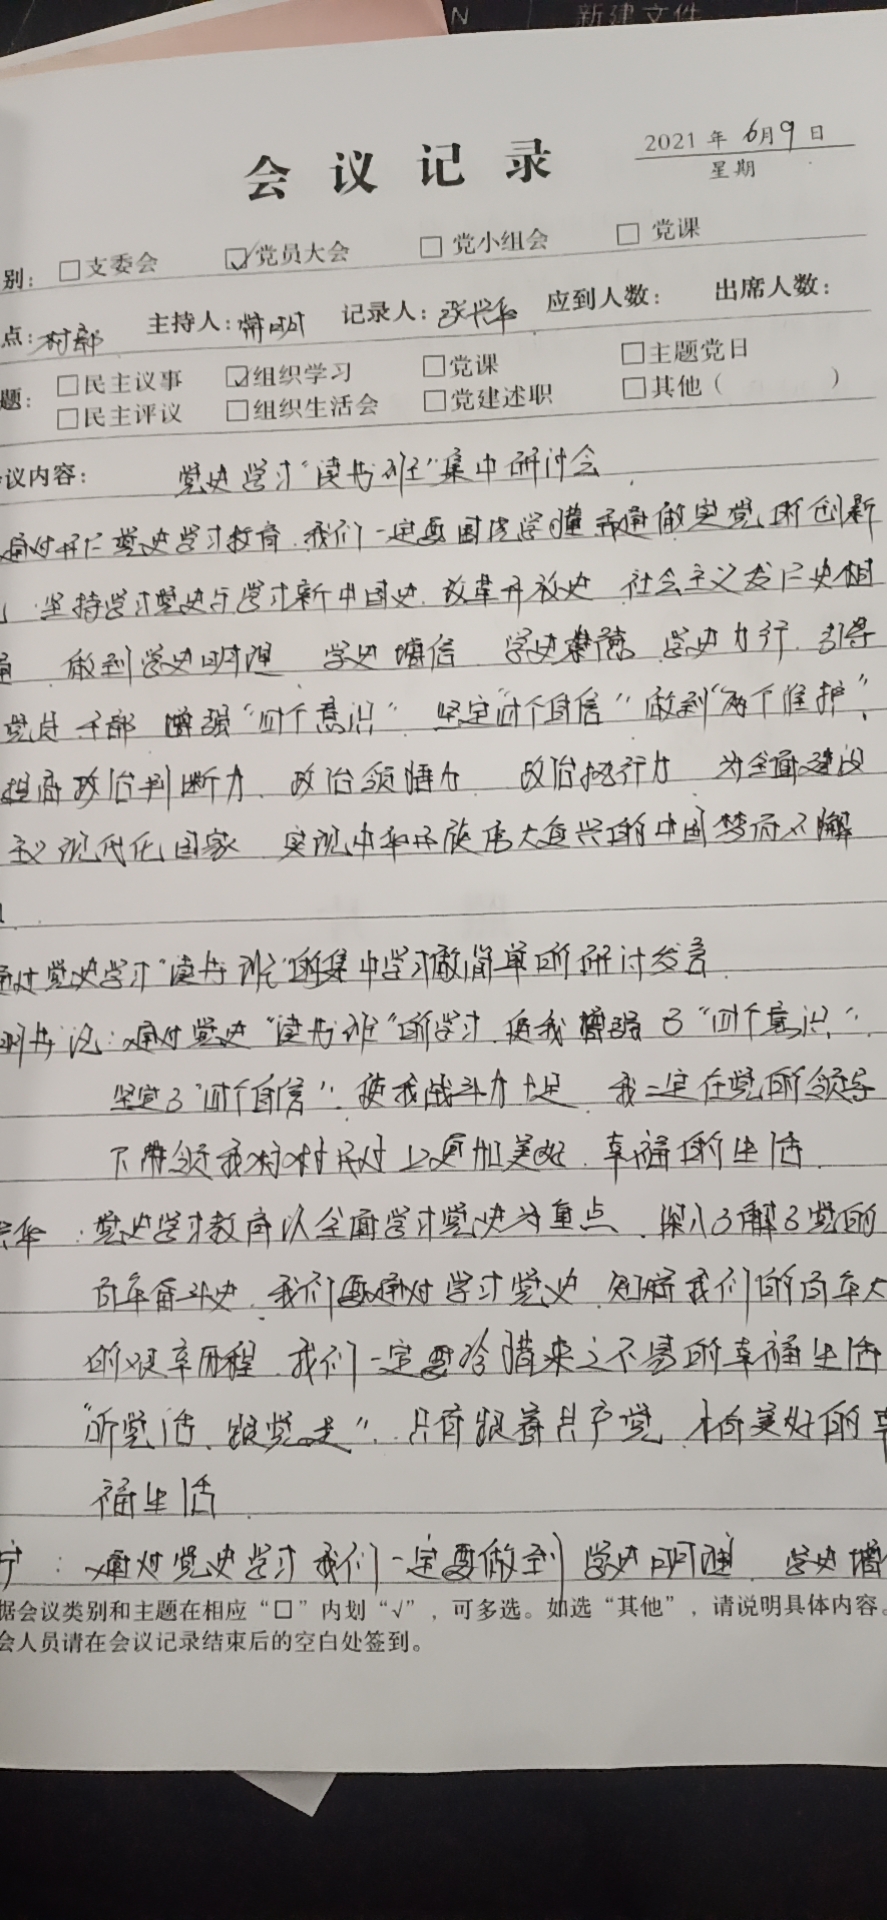 新建文件
会议记录
2021年6月9日
星期
别: □支委会 ☑党员大会 □党小组会 □党课
点:村部 主持人: 记录人:张兴华 应到人数: 出席人数:
题: □民主议事 ☑组织学习 □党课 □主题党日
□民主评议 □组织生活会 □党建述职 □其他( )
议内容: 党史学习“读书班”集中研讨会
通过开展党史学习教育.我们一定要 学懂弄通做实党的创新
坚持学习党史与学习新中国史.改革开放史 社会主义发展史相
通 做到学史明理 学史增信 学史崇德 学史力行.引导
党员干部 增强“四个意识”.坚定“四个自信”做到“两个维护”.
提高政治判断力.政治领悟力.政治执行力 为全面建设
主义现代化国家 实现中华民族伟大复兴的中国梦而不懈
通过党史学习“读书班”的集中学习做简单的研讨发言.
明书记:通过党史“读书班”的学习.使我增强了“四个意识”.
坚定了“四个自信”.使我战斗力十足.我一定在党的领导
下带领我村村民过上更加美好.幸福的生活.
兴华:党史学习教育以全面学习党史为重点.深入了解了党的
百年奋斗史.我们要通过学习党史.知晓我们的百年大
的艰辛历程.我们一定要珍惜来之不易的幸福生活
“听党话、跟党走”.只有跟着共产党.才有美好的幸
福生活.
:通过党史学习我们一定要做到学史明理.学史增
据会议类别和主题在相应“□”内划“√”,可多选。如选“其他”,请说明具体内容。
会人员请在会议记录结束后的空白处签到。